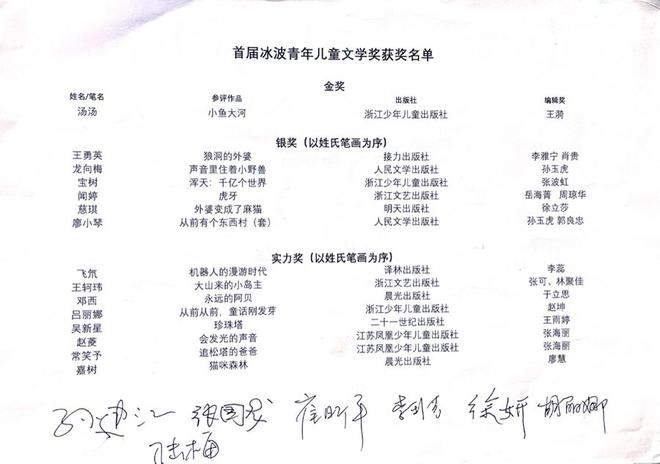 首届冰波青年儿童文学奖获奖名单
金奖
姓名/笔名 参评作品 出版社 编辑奖
汤汤 小鱼大河 浙江少年儿童出版社 王漪
银奖（以姓氏笔画为序）
王勇英 狼洞的外婆 接力出版社 李雅宁 肖贵
龙向梅 声音里住着小野兽 人民文学出版社 孙玉虎
宝树 浑天：千亿个世界 浙江少年儿童出版社 张波虹
闻婷 虎牙 浙江文艺出版社 岳海菁 周琼华
慈琪 外婆变成了麻猫 明天出版社 徐立莎
廖小琴 从前有个东西村（套） 人民文学出版社 孙玉虎 郭良忠
实力奖（以姓氏笔画为序）
飞氘 机器人的漫游时代 译林出版社 李蕊
王轲玮 大山来的小岛主 浙江文艺出版社 张可、林聚佳
邓西 永远的阿贝 晨光出版社 于立思
吕丽娜 从前从前，童话刚发芽 浙江少年儿童出版社 赵坤
吴新星 珍珠塔 二十一世纪出版社 王雨婷
赵菱 会发光的声音 江苏凤凰少年儿童出版社 张海丽
常笑予 追松塔的爸爸 江苏凤凰少年儿童出版社 张海丽
嘉树 猫咪森林 晨光出版社 廖慧
张国龙 崔昕平 徐妍 胡丽娜
陆梅